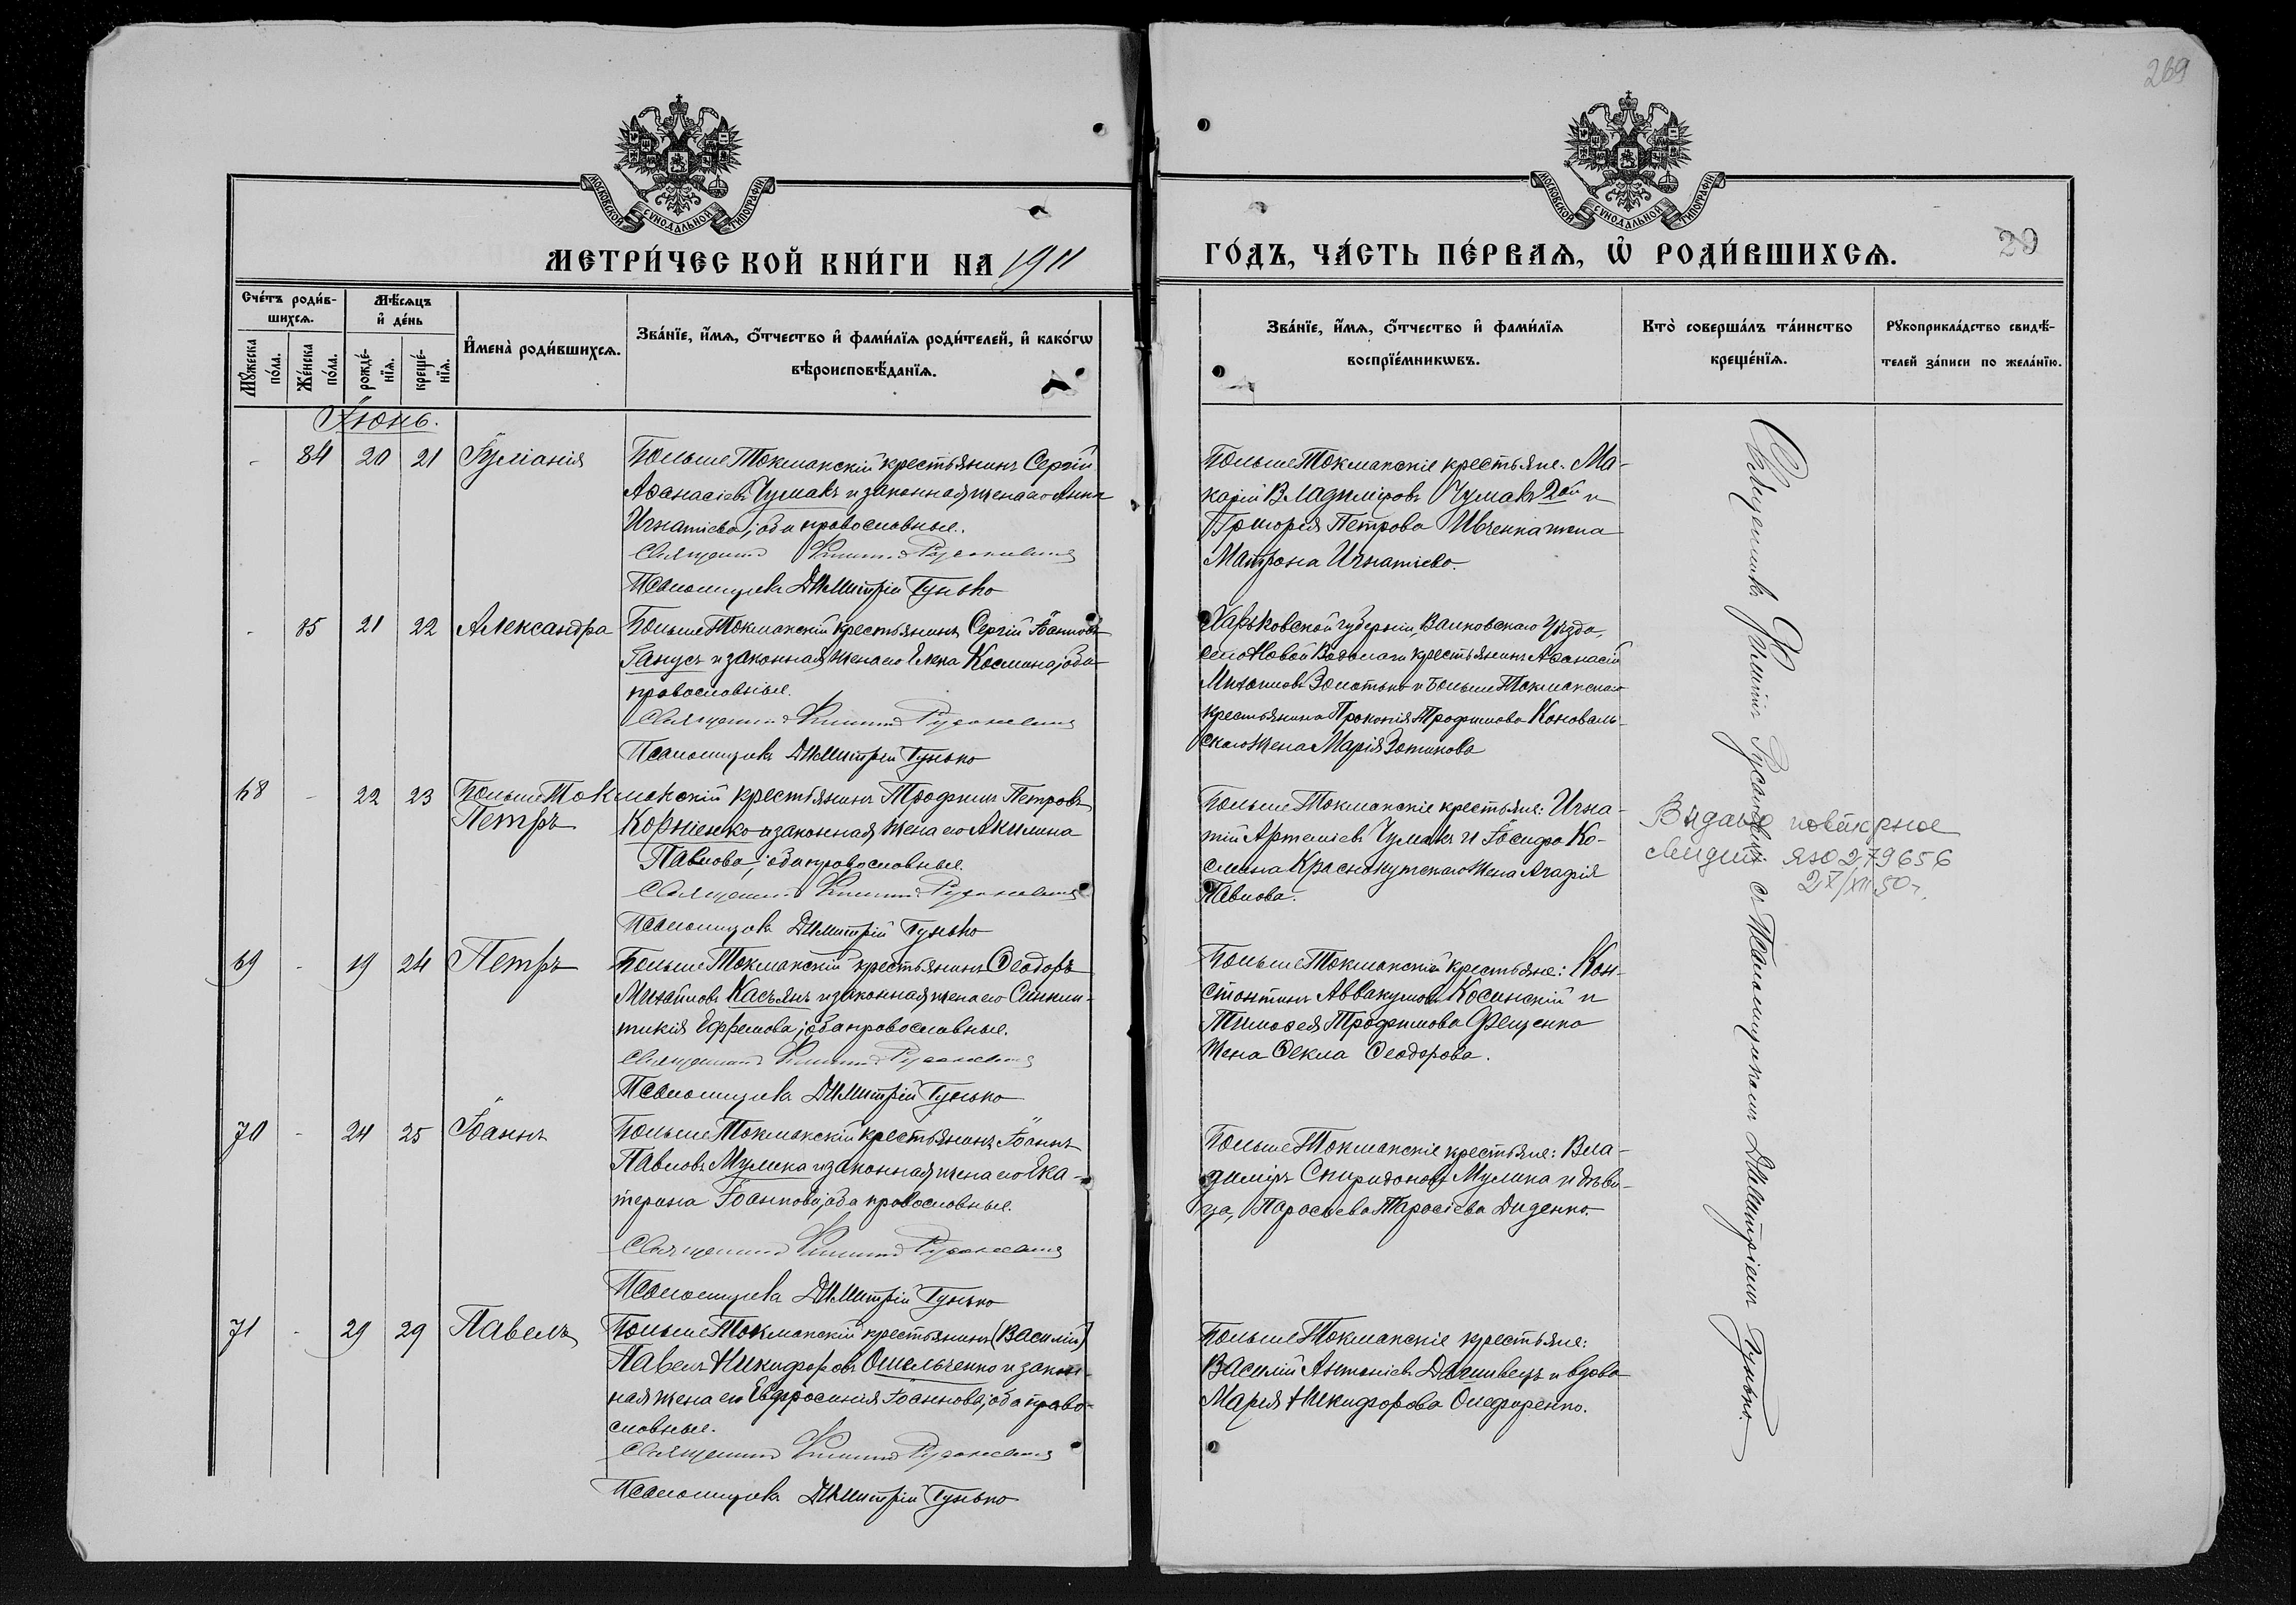 269
МОСКОВСКОЙ СѴНОДАЛЬНОЙ ТИПОГРАФІИ
МОСКОВСКОЙ СѴНОДАЛЬНОЙ ТИПОГРАФІИ
МЕТРИ́ЧЕСКОЙ КНИ́ГИ НА 1911
ГО́ДЪ, ЧА́СТЬ ПЕ́РВАѦ, Ѽ РОДИ́ВШИХСѦ.
20
Сче́тъ роди́в-
шихсѧ.
Мѣ́сѧцъ
и҆ де́нь
Мꙋ́жеска
по́ла.
Же́нска
по́ла.
рожде́-
нїѧ.
креще́-
нїѧ.
И҆мена̀ роди́вшихсѧ.
Зва́нїе, и҆́мѧ, ѻ҆́тчество и҆ фами́лїѧ роди́телей, и҆ како́гѡ
вѣроисповѣ́данїѧ.
Зва́нїе, и҆́мѧ, ѻ҆́тчество и҆ фами́лїѧ
воспрїе́мникѡвъ.
Кто̀ соверша́лъ та́инство
креще́нїѧ.
Рꙋкоприкла́дство свидѣ́-
телей за́писи по жела́нїю.
Іюнь.
- 84 20 21 Іуліанія
БольшеТокмакскій крестьянинъ Сергій
Аѳанасіевъ Чумакъ и законная жена его Анна
Игнатіева; оба православные.
Священникъ
Псаломщикъ Димитрій Гунько
БольшеТокмакскіе крестьяне: Ма-
карій Владиміровъ Чумакъ 2ой и
Григорія Петрова Ивченка жена
Матрона Игнатіева.
- 85 21 22 Александра
БольшеТокмакскій крестьянинъ Сергій Іоанновъ
Ганусъ и законная жена его Елена Космина; оба
православные.
Священникъ
Псаломщикъ Димитрій Гунько
Харьковской губерніи, Валковскаго уѣзда,
села Новой Водолаги крестьянинъ Аѳанасій
Михаиловъ Золотько и БольшеТокмакскаго
крестьянина Прокопія Трофимова Коноваль-
скаго жена Марія Зотикова
68 - 22 23 БольшеТокмакскій крестьянинъ Трофимъ Петровъ
Петръ Корніенко и законная жена его Акилина
Павлова; оба православные.
Священникъ
Псаломщикъ Димитрій Гунько
БольшеТокмакскіе крестьяне: Игна-
тій Артеміевъ Чумакъ и Іосифа Ко-
смина Краснокутскаго жена Агафія
Павлова.
Видано повторное
ЯЮ 279656
69 - 19 24 Петръ
БольшеТокмакскій крестьянинъ Ѳеодоръ
Михайловъ Касьянъ и законная жена его Синкли-
тикія Ефремова; оба православные.
Священникъ
Псаломщикъ Димитрій Гунько
БольшеТокмакскій крестьяне: Кон-
стантинъ Аввакумовъ Косинскій и
Тимоѳея Трофимова Фещенко
жена Ѳекла Ѳеодорова.
70 - 24 25 Іоаннъ
БольшеТокмакскій крестьянинъ Іоаннъ
Павловъ Мулика и законная жена его Ека-
терина Іоаннова; оба православные.
Священникъ
Псаломщикъ Димитрій Гунько
БольшеТокмакскіе крестьяне: Вла-
диміръ Спиридоновъ Мулика и дѣви-
ца, Параскева Тарасіева Диденко.
71 - 29 29 Павелъ
БольшеТокмакскій крестьянинъ (Василій)
Павелъ Никифоровъ Омельченко и закон-
ная жена его Евфросинія Іоаннова; оба право-
славные.
Священникъ
Псаломщикъ Димитрій Гунько
БольшеТокмакскіе крестьяне:
Василій Антоніевъ Дагинвецъ и вдова
Марія Никифорова Олефиренко.
Священникъ съ Псаломщикомъ Димитріемъ Гунько.